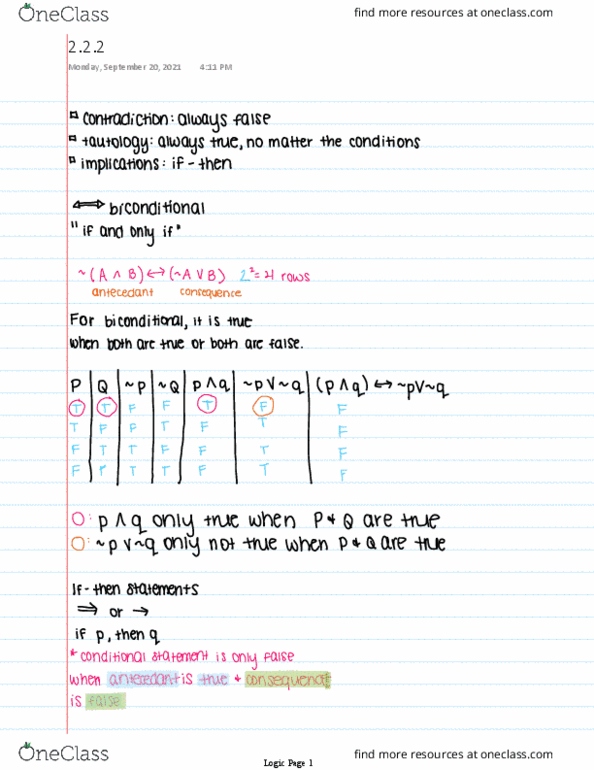 OneClass find more resources at oneclass.com
2.2.2
Monday, September 20, 2021 4:11 PM
contradiction: always false
tautology: always true, no matter the conditions
implications: if - then
⟺ biconditional
"if and only if"
~(A ∧ B) ↔ (~A ∨ B) 2²=4 rows
antecedant consequence
For biconditional, it is true
when both are true or both are false.
P Q ~P ~Q p∧q ~p∨~q (p∧q) ↔ ~p∨~q
T T F F T F F
T F F T F T F
F T T F F T F
F F T T F T F
O: p∧q only true when P & Q are true
O: ~p∨~q only not true when P & Q are true
If-then statements
⇒ or →
if p, then q
* conditional statement is only false
when antecedant is true & consequenat
is false
OneClass find more resources at oneclass.com
Logic Page 1